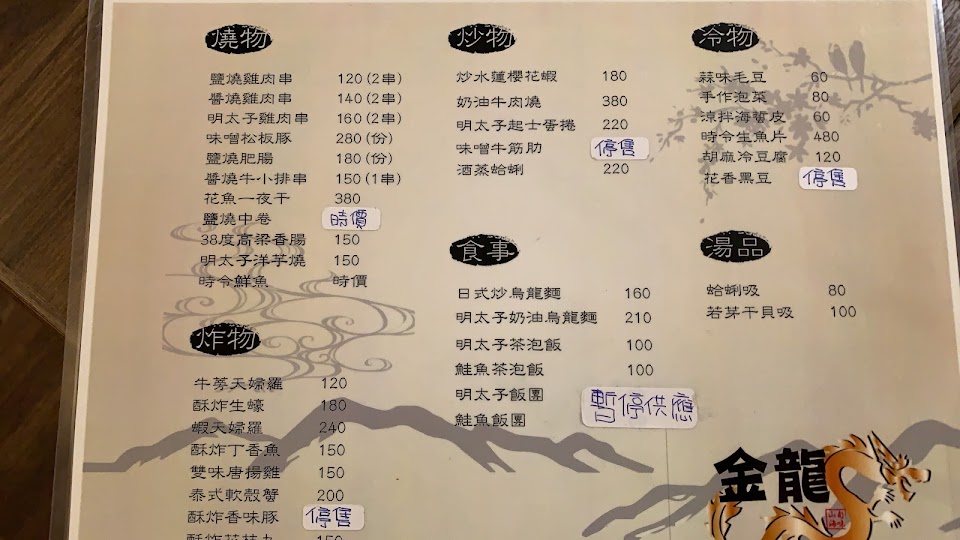 燒物
鹽燒雞肉串 120 (2串)
醬燒雞肉串 140 (2串)
明太子雞肉串 160 (2串)
味噌松板豚 280 (份)
鹽燒肥腸 180 (份)
醬燒牛小排串 150 (1串)
花魚一夜干 380
鹽燒中卷 時價
38度高梁香腸 150
明太子洋芋燒 150
時令鮮魚 時價
炸物
牛蒡天婦羅 120
酥炸生蠔 180
蝦天婦羅 240
酥炸丁香魚 150
雙味唐揚雞 150
泰式軟殼蟹 200
酥炸香味豚 停售
炒物
炒水蓮櫻花蝦 180
奶油牛肉燒 380
明太子起士蛋捲 220
味噌牛筋肋 停售
酒蒸蛤蜊 220
食事
日式炒烏龍麵 160
明太子奶油烏龍麵 210
明太子茶泡飯 100
鮭魚茶泡飯 100
明太子飯團
鮭魚飯團
暫停供應
冷物
蒜味毛豆 60
手作泡菜 80
涼拌海蜇皮 60
時令生魚片 480
胡麻冷豆腐 120
花香黑豆 停售
湯品
蛤蜊吸 80
若芽干貝吸 100
金龍